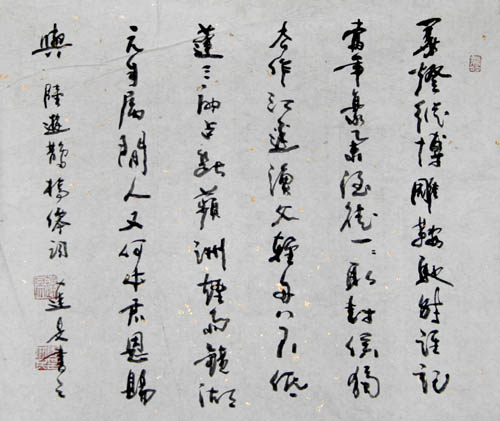 華燈縱博雕鞍馳射誰記
當年豪舉酒徒一一取封侯獨
去作江邊漁父輕舟八尺低
蓬三扇占斷蘋洲煙雨鏡湖
元自属閒人又何必君恩賜
與 陸遊鵲橋仙詞 書之